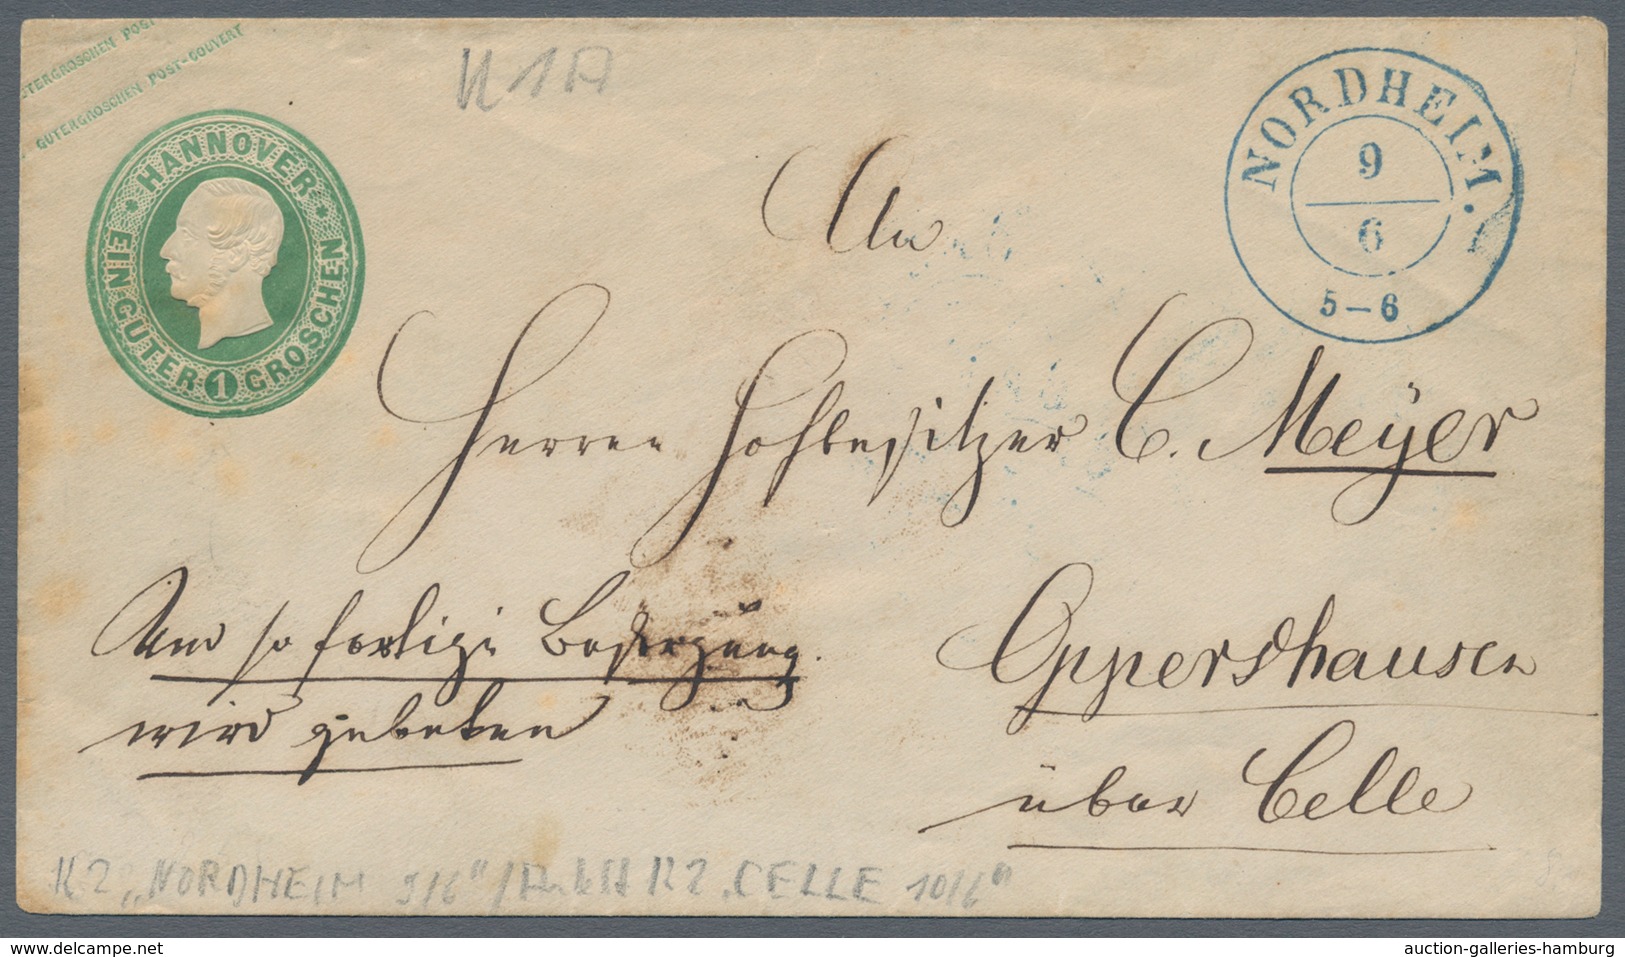 GUTERGROSCHEN POST
GUTERGROSCHEN POST-COUVERT
HANNOVER
EIN GUTER 1 GROSCHEN
U1A
NORDHEIM.
9
6
5-6
An
Herren Hofbesitzer C. Meyer
Um sofortige Besorgung
wird gebeten
Oppershausen
über Celle
K2 „NORDHEIM 9/6" / K2 „CELLE 10/6"
www.delcampe.net
auction-galleries-hamburg